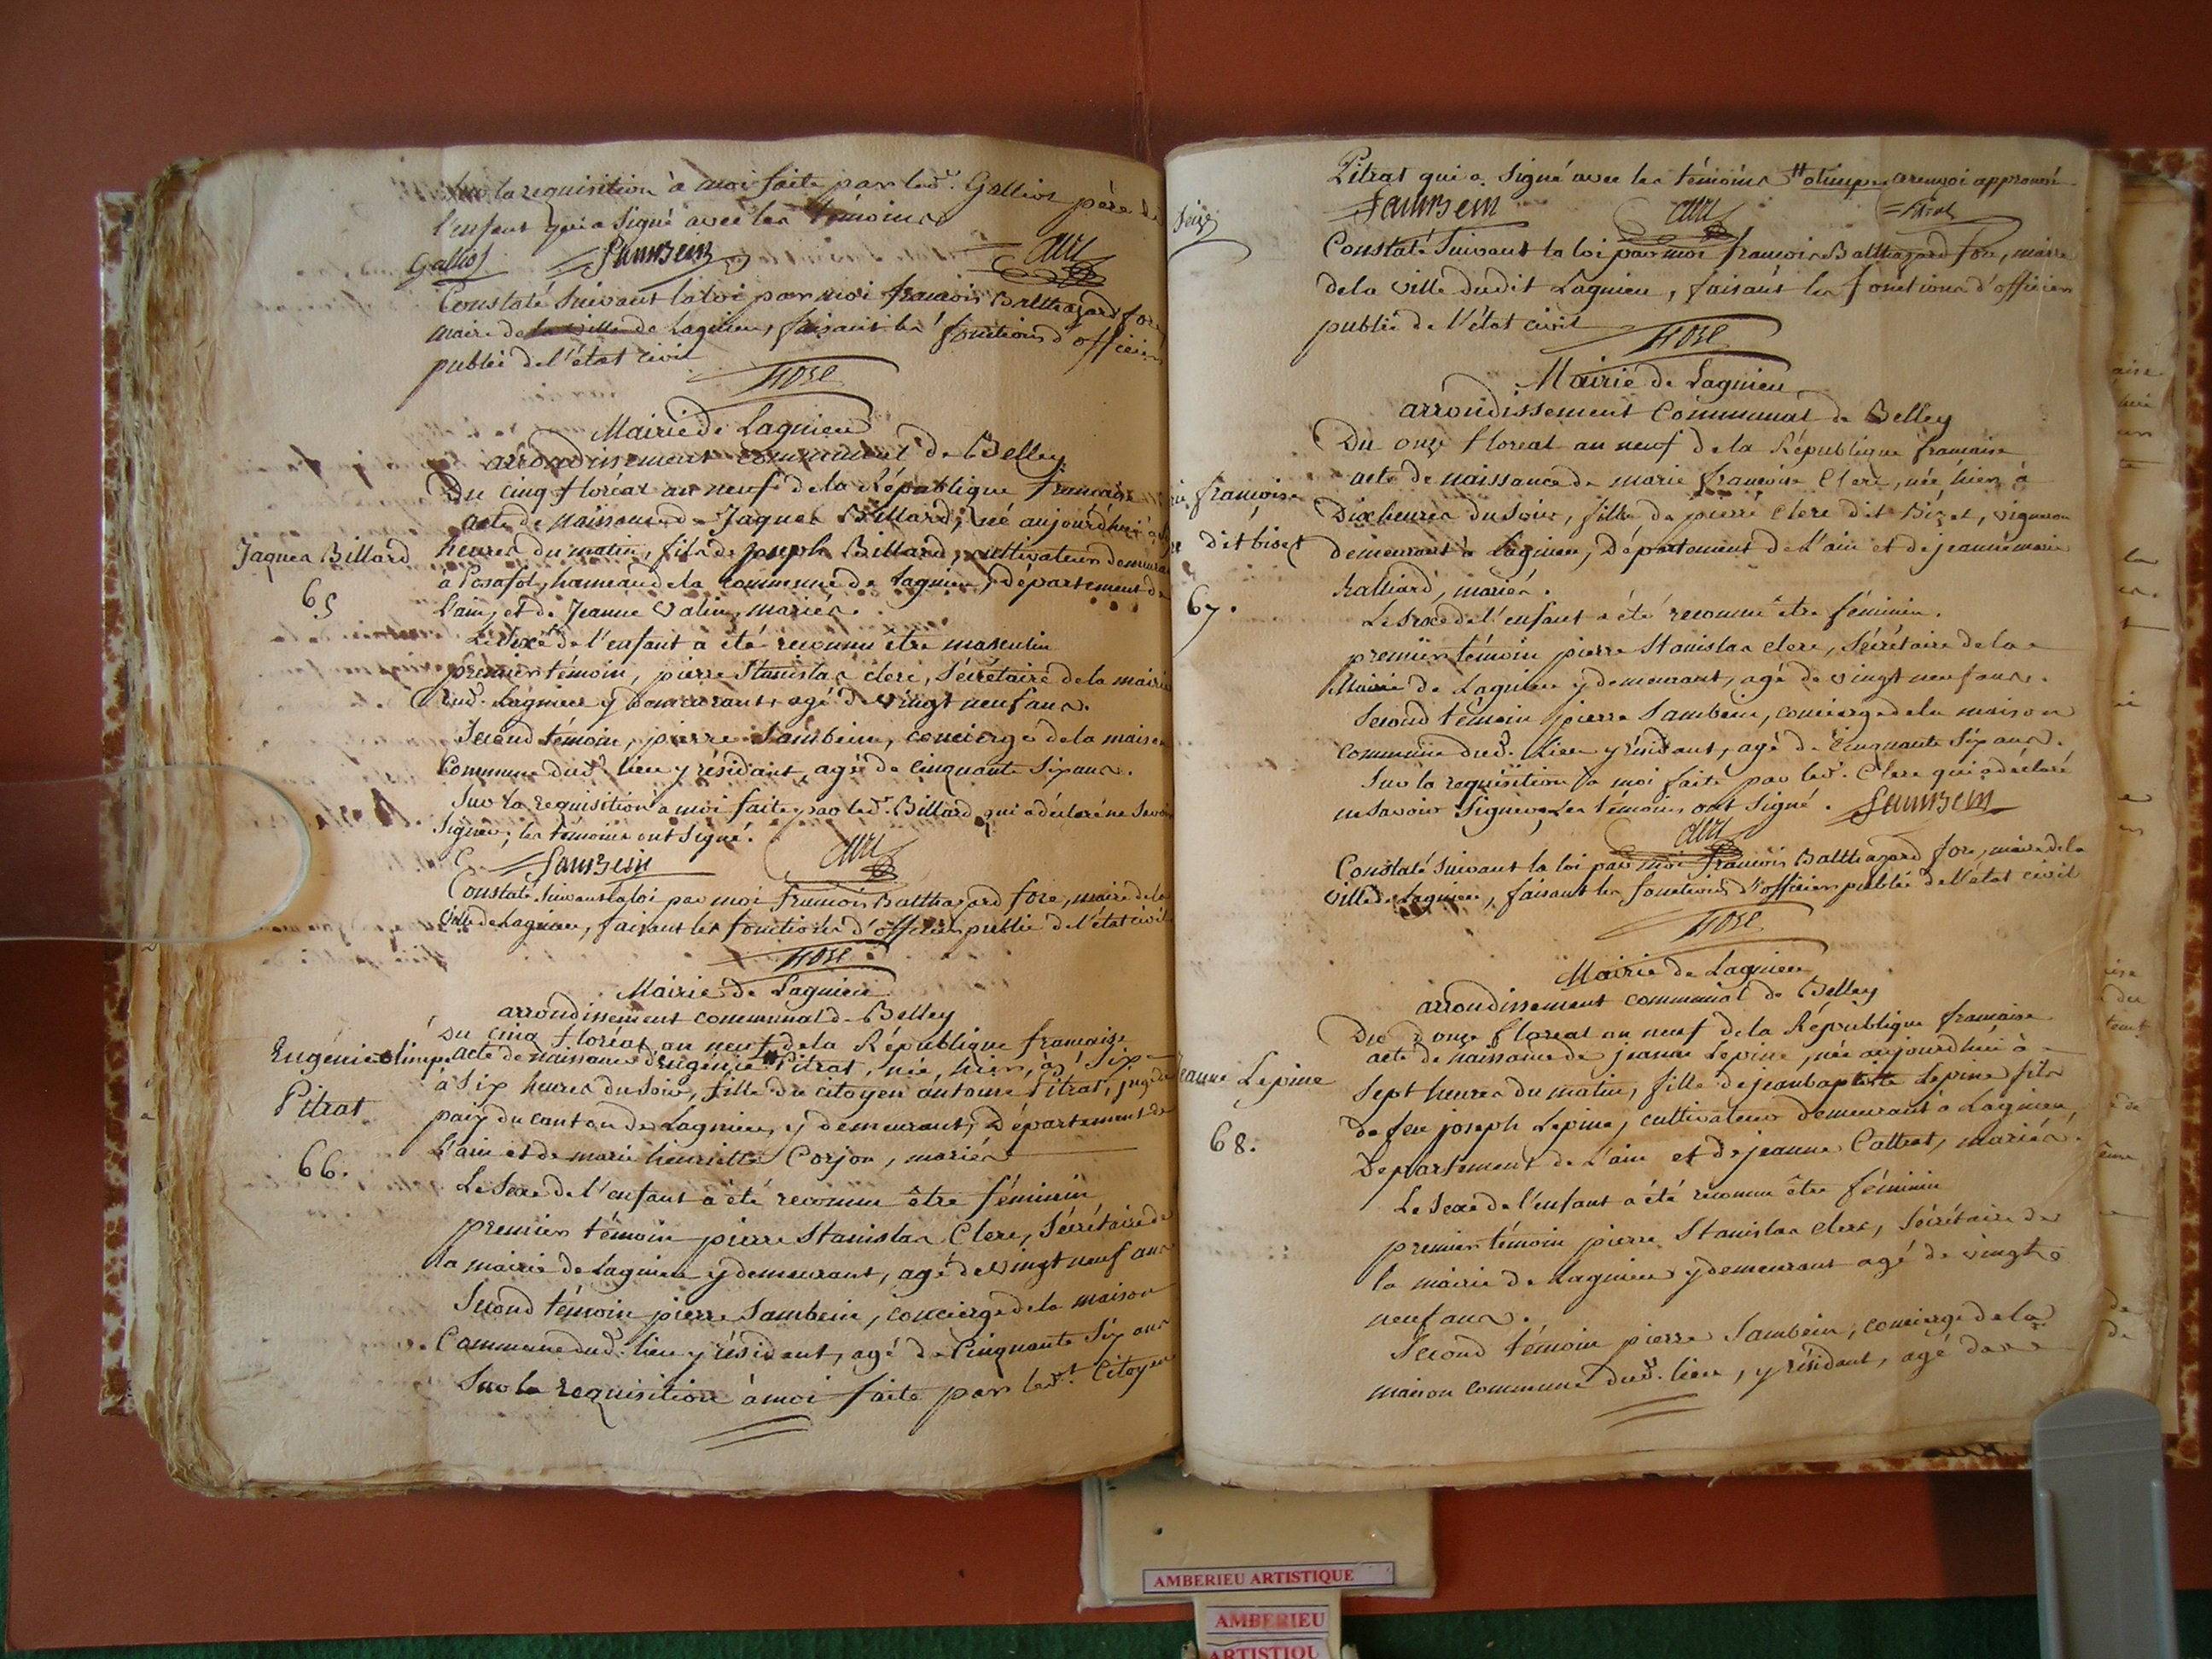 Sur la requisition à moi faite par led.t Galliot père de
l'enfant qui a signé avec les témoins
Galliot Sambein Clerc
Constaté suivant la loi par moi françois Balthazard fore
maire de la ville de Lagnieu, faisant les fonctions d'officier
public de l'état civil
fore
Mairie de Lagnieu
arrondissement communal de Belley
Du cinq floréal an neuf de la République francaise
acte de naissance de Jaques Billard, né aujourd'hui à
heures du matin, fils de Joseph Billard, cultivateur demeurant
à Posafol, hameau de la commune de Lagnieu, département de
l'ain, et de Jeanne Valin, mariés.
Jaques Billard
65
Le sexe de l'enfant a été reconnu être masculin
premier témoin, pierre Stanislas clerc, sécrétaire de la mairie
dud. Lagnieu y demeurant, agé de vingt neuf ans.
Second témoin, pierre Sambein, concierge de la maison
Commune dud.t lieu y résidant, agé de cinquante six ans.
Sur la requisition à moi faite par led.t Billard qui a déclaré ne savoir
signer; les témoins ont signé.
Sambein Clerc
Constaté suivant la loi par moi francois Balthazard fore, maire de la
ville de Lagnieu, faisant les fonctions d'officier public de l'état civil
fore
Mairie de Lagnieu
arrondissement communal de Belley
Du cinq floréal an neuf de la République francaise
acte de naissance d'eugénie # Pitrat, née, hier, à six
à six heures du soir, fille du citoyen antoine Pitrat, juge de
paix du canton de Lagnieu, y demeurant, département de
l'ain et de marie henriette Corjon, mariés
Eugénie olimpe
Pitrat
66.
Le sexe de l'enfant a été reconnu être féminin
premier témoin pierre Stanislas Clerc, sécrétaire de
la mairie de Lagnieu y demeurant, agé de vingt neuf ans
Second témoin pierre Sambein, concierge de la maison
Commune dud.t lieu y résidant, agé de Cinquante six ans
Sur la requisition à moi faite par led.t Citoyen
Pitrat qui a signé avec les témoins # olimpe a renvoi approuvé
Sambein Clerc Pitrat
Seize
Constaté suivant la loi par moi françois Balthazard fore, maire
de la ville dudit Lagnieu, faisant les fonctions d'officier
public de l'état civil
fore
Mairie de Lagnieu
arrondissement Communal de Belley
Du onze floreal an neuf de la République francaise
acte de naissance de marie francoise Clerc, née hier à
Dix heures du soir, fille de pierre clerc dit Bizet, vigneron
demeurant à Lagnieu, département de l'ain et de jeanne marie
halliard, mariés.
françoise
dit biset
67.
Le sexe de l'enfant a été reconnu être féminin.
premier témoin pierre Stanislas clerc, sécrétaire de la
Mairie de Lagnieu y demeurant, agé de vingt neuf ans.
Second témoin pierre Sambein, concierge de la maison
commune dud.t lieu y résidant, agé de cinquante six ans.
Sur la requisition à moi faite par led.t Clerc qui a déclaré
ne savoir signer, les témoins ont signé. Sambein
Clerc
Constaté suivant la loi par moi francois Balthazard fore, maire de la
ville de Lagnieu, faisant les fonctions d'officier public de l'état civil
fore
Mairie de Lagnieu
arrondissement communal de Belley
Du donze floreal an neuf de la République francaise
acte de naissance de jeanne Lepine, née aujourdhui à
sept heures du matin, fille de jean baptiste Lepine fils
de feu joseph Lepine, cultivateur demeurant à Lagnieu,
Departement de l'ain et de jeanne Cottret, mariés.
Jeanne Lepine
68.
Le sexe de l'enfant a été reconnu être féminin
premier témoin pierre Stanislas clerc, sécrétaire de
la mairie de Lagnieu y demeurant agé de vingt
neuf ans.
Second témoin pierre Sambein, concierge de la
maison commune dud.t lieu, y résidant, agé de
AMBERIEU ARTISTIQUE
AMBERIEU
ARTISTIQU